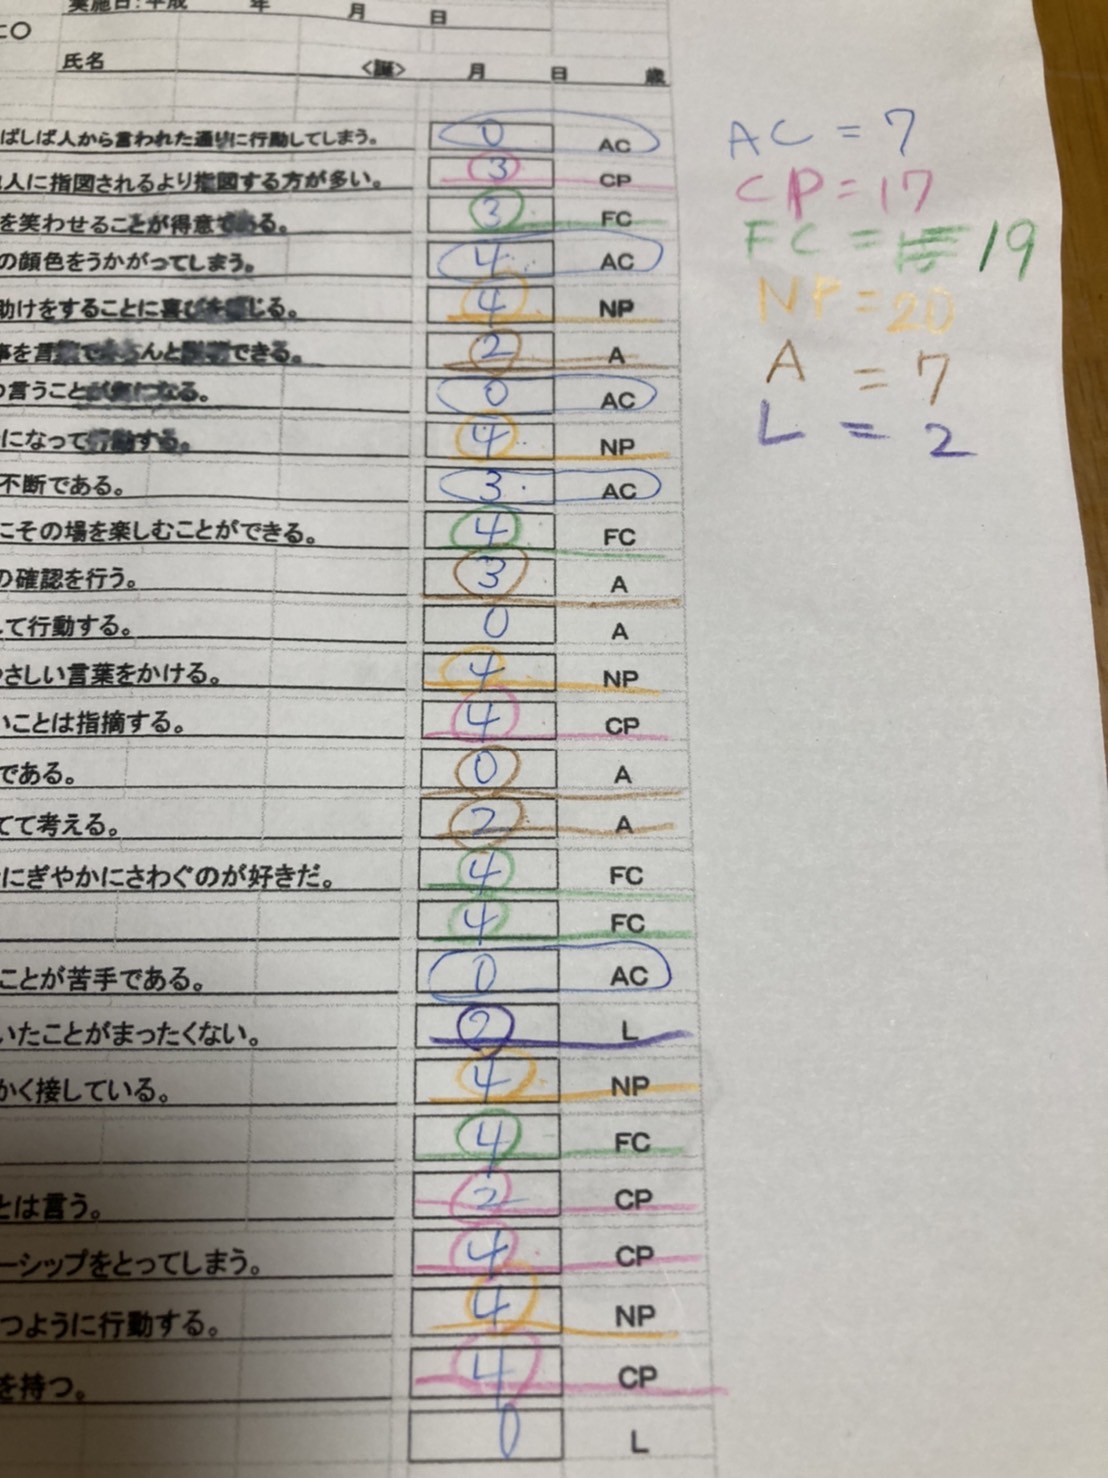 実施日：平成 年 月 日
に〇
氏名 <誕> 月 日 歳
ばしば人から言われた通りに行動してしまう。 0 AC
人に指図されるより指図する方が多い。 3 CP
を笑わせることが得意である。 3 FC
の顔色をうかがってしまう。 4 AC
助けをすることに喜びを感じる。 4 NP
事を言 んと できる。 2 A
言うことが気になる。 0 AC
になって行動する。 4 NP
不断である。 3 AC
にその場を楽しむことができる。 4 FC
の確認を行う。 3 A
して行動する。 0 A
やさしい言葉をかける。 4 NP
いことは指摘する。 4 CP
である。 0 A
てて考える。 2 A
にぎやかにさわぐのが好きだ。 4 FC
4 FC
ことが苦手である。 0 AC
いたことがまったくない。 2 L
かく接している。 4 NP
4 FC
とは言う。 2 CP
ーシップをとってしまう。 4 CP
つように行動する。 4 NP
を持つ。 4 CP
0 L
AC = 7
CP = 17
FC = 19
NP = 20
A = 7
L = 2